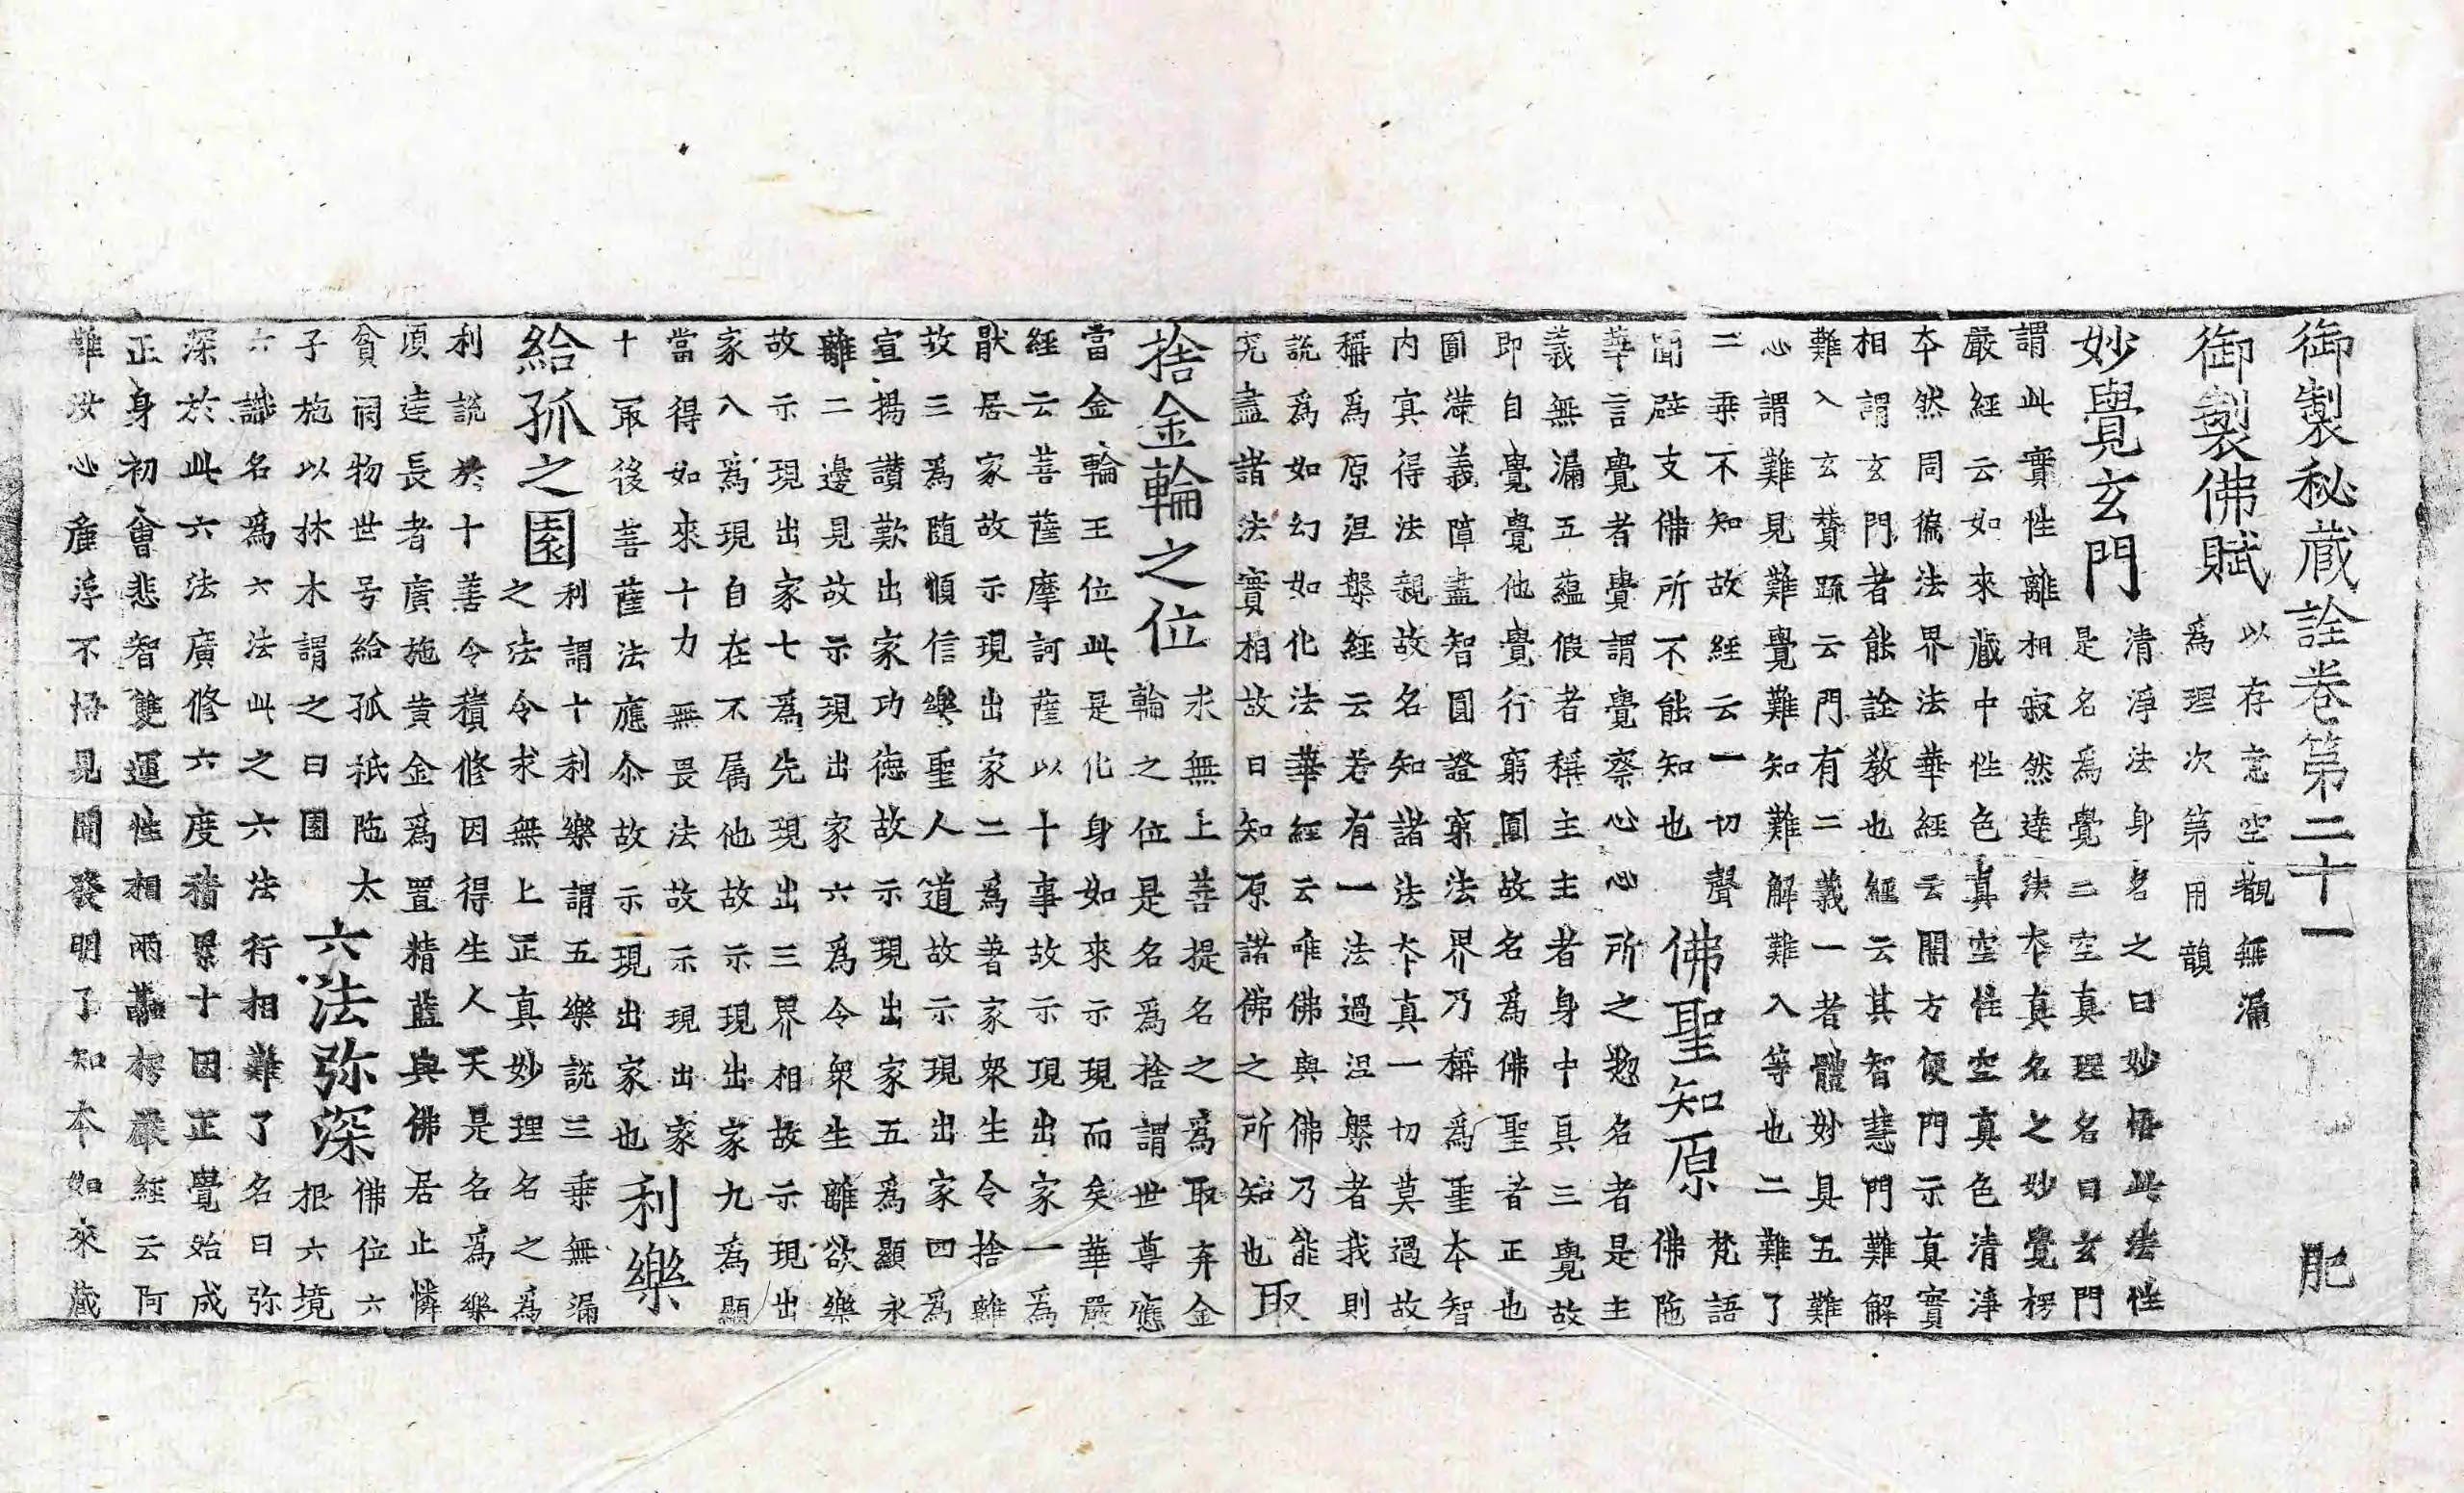 御製秘蔵詮卷第二十一 肥
御製佛賦
以存意空觀無漏
為理次第用韻
妙覺玄門
清淨法身名之曰妙悟此法性
是名為覺二空真理名曰玄門
謂此實性離相寂然達法本真名之妙覺楞
嚴經云如來藏中性色真空性空真色清淨
本然同徧法界法華經云開方便門示真實
相謂玄門者能詮教也經云其智慧門難解
難入玄賛疏云門有二義一者體妙具五難
心謂難見難覺難知難解難入等也二難了
二乗不知故經云一切聲
聞辟支佛所不能知也
佛聖知原
梵語
佛陁
華言覺者覺謂覺察心心所之惣名者是主
義無漏五蘊假者稱主主者身中具三覺故
即自覺覺他覺行窮圓故名為佛聖者正也
圓滿義障盡智圓證窮法界乃稱為聖本智
内冥得法親故名知諸法本真一切莫過故
稱為原涅槃經云若有一法過涅槃者我則
説為如幻如化法華經云唯佛與佛乃能
究盡諸法實相故曰知原諸佛之所知也
取
捨金輪之位
求無上菩提名之為取弃金
輪之位是名為捨謂世尊應
當金輪王位此是化身如來示現而矣華嚴
經云菩薩摩訶薩以十事故示現出家一為
猒居家故示現出家二為著家衆生令捨離
故三為隨順信樂聖人道故示現出家四為
宣揚讃歎出家功德故示現出家五為顯永
離二邊見故示現出家六為令衆生離欲樂
故示現出家七為先現出三界相故示現出
家八為現自在不屬他故示現出家九為顯
當得如來十力無畏法故示現出家
十冣後菩薩法應尒故示現出家也
利樂
給孤之園
利謂十利樂謂五樂説三乗無漏
之法令求無上正真妙理名之為
利説於十善令積修因得生人天是名為樂
須達長者廣施黄金為置精藍與佛居止憐
貧潤物世号給孤祇陁太
子施以林木謂之曰園
六法弥深
佛位六
根六境
六識名為六法此之六法行相難了名曰弥
深於此六法廣修六度積累十因正覺始成
正身初會悲智雙運性相兩融楞嚴經云阿
難汝心麁浮不悟見聞發明了知本如來藏